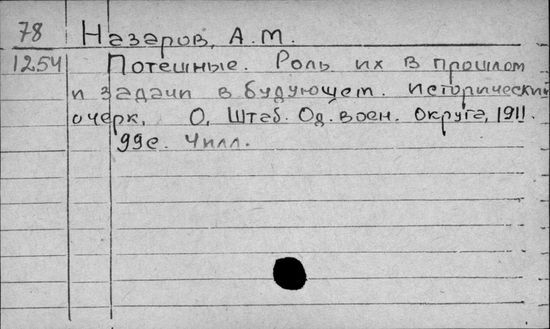 78 Назаров, А.М.
1254 Потешные. Роль их в прошлом
и задачи в будующем. Исторический
очерк. О, Штаб. Од. воен. округа, 1911.
99с. Чилл.